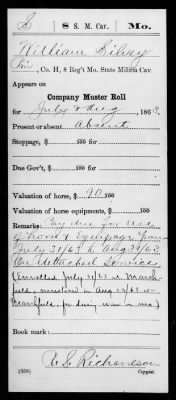 S | 8 S. M. Cav. | Mo.
William Sibley
Pvt, Co. H, 8 Reg't Mo. State Militia Cav.
Appears on
Company Muster Roll
for July & Aug, 1863.
Present or absent Absent
Stoppage, $ 100
Due Gov't, $ 100
Valuation of horse, $ 90 100
Valuation of horse equipments, $ 100
Remarks: Pay due for use
of horse & Equipage from
July 31/63 to Aug 31/63
On detached Service
(Enrolled July 31/63 at Marsh-
field, mustered in Aug 23/63 at
for dur'g war in mo.)
Book mark:
Richardson
(358) Copyist.